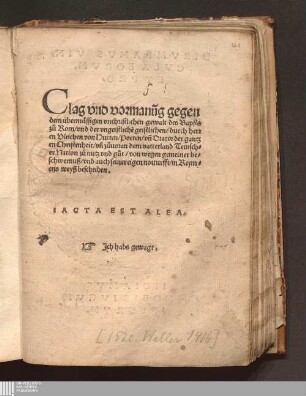 Clag vnd vormanūg gegen
dem übermässigen vnchristlichen gewalt des Bapsts
zů Rom/ vnd der vngeistlichē geistlichen/ durch herren
Vlrichen von Hutten/ Poeten/ vñ Orator der gantzen
Christenheit/ vñ zůuoran dem vatterland Teütscher
Nation zů nutz vnd gůt/ von wegen gemeiner beschwernuß/
vnd auch seiner eigen notturfft/ in Reymens
weyß beschriben.
IACTA EST ALEA.
Ich habs gewagt.
[1520. Weller 1416]